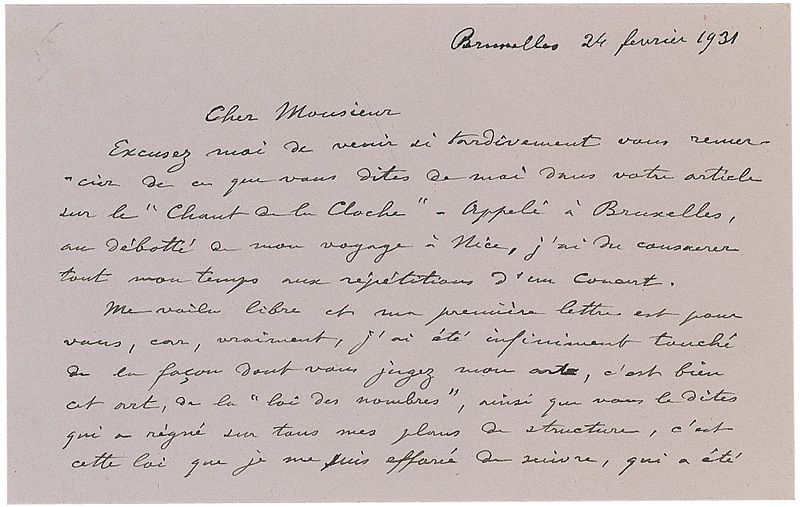 Bruxelles 24 fevrier 1931
Cher Monsieur
Excusez moi de venir si tardivement vous remer-
-cier de ce que vous dites de moi dans votre article
sur le "Chant de la Cloche" - Appelé à Bruxelles,
au débotté de mon voyage à Nice, j'ai du consacrer
tout mon temps aux répétitions d'un Concert.
Me voila libre et ma première lettre est pour
vous, car, vraiment, j'ai été infiniment touché
de la façon dont vous jugez mon art, c'est bien
cet art, de la "loi des nombres", ainsi que vous le dites
qui a régné sur tous mes plans de structure, c'est
cette loi que je me suis efforcé de suivre, qui a été